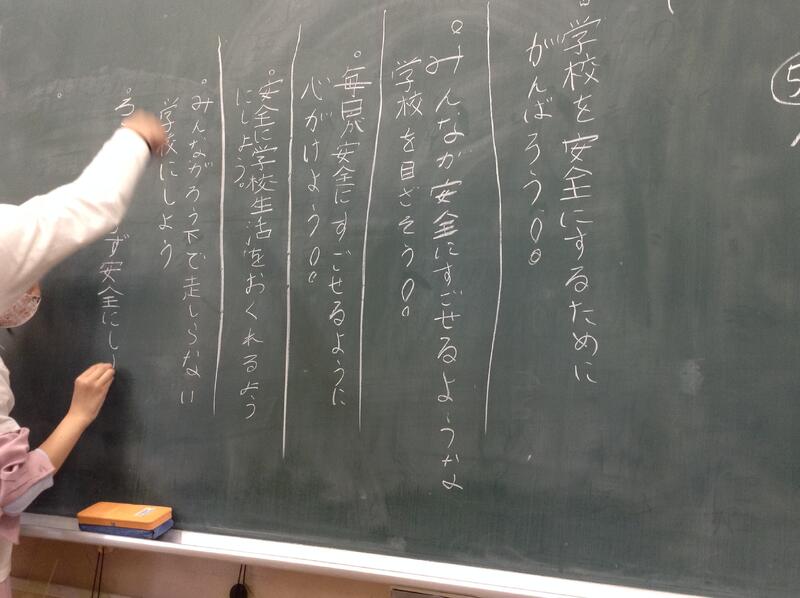 ⑤
。学校を安全にするために
がんばろう！。
。みんなが安全にすごせるような
学校を目ざそう！。
。毎日安全にすごせるように
心がけよう！。
。安全に学校生活をおくれるよう
にしよう。
。みんながろう下で走しらない
学校にしよう
。ろ
ず安全にし